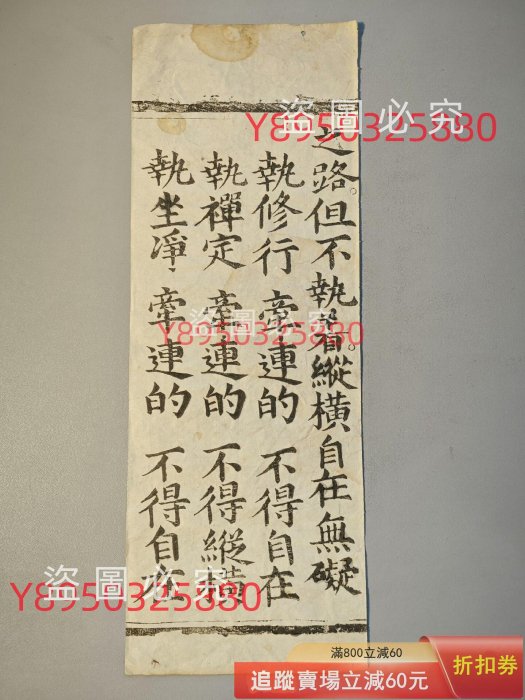 之路但不執着縱橫自在無礙
執修行 牽連的 不得自在
執禪定 牽連的 不得縱橫
執坐凈 牽連的 不得自在
盜圖必究
Y8950325880
盜圖必究
Y8950325880
盜圖必究
Y8950325880
滿800立減60
追蹤賣場立減60元
折扣券